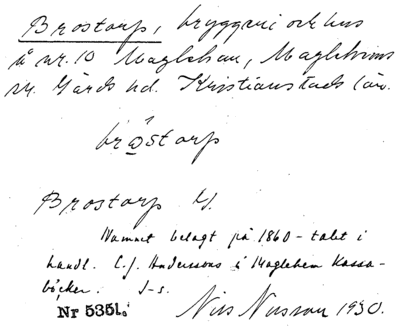 Brostorp, bryggeri och hus
å nr. 10 Maglehem, Maglehems
sn. Gärds hd. Kristianstads län.
bråstorp
Brostorp
Namnet belagt på 1860-talet i
handl. C. J. Anderssons i Maglehem Kassa-
böcker. J-s.
Nr 5351. Nils Nilsson 1930.